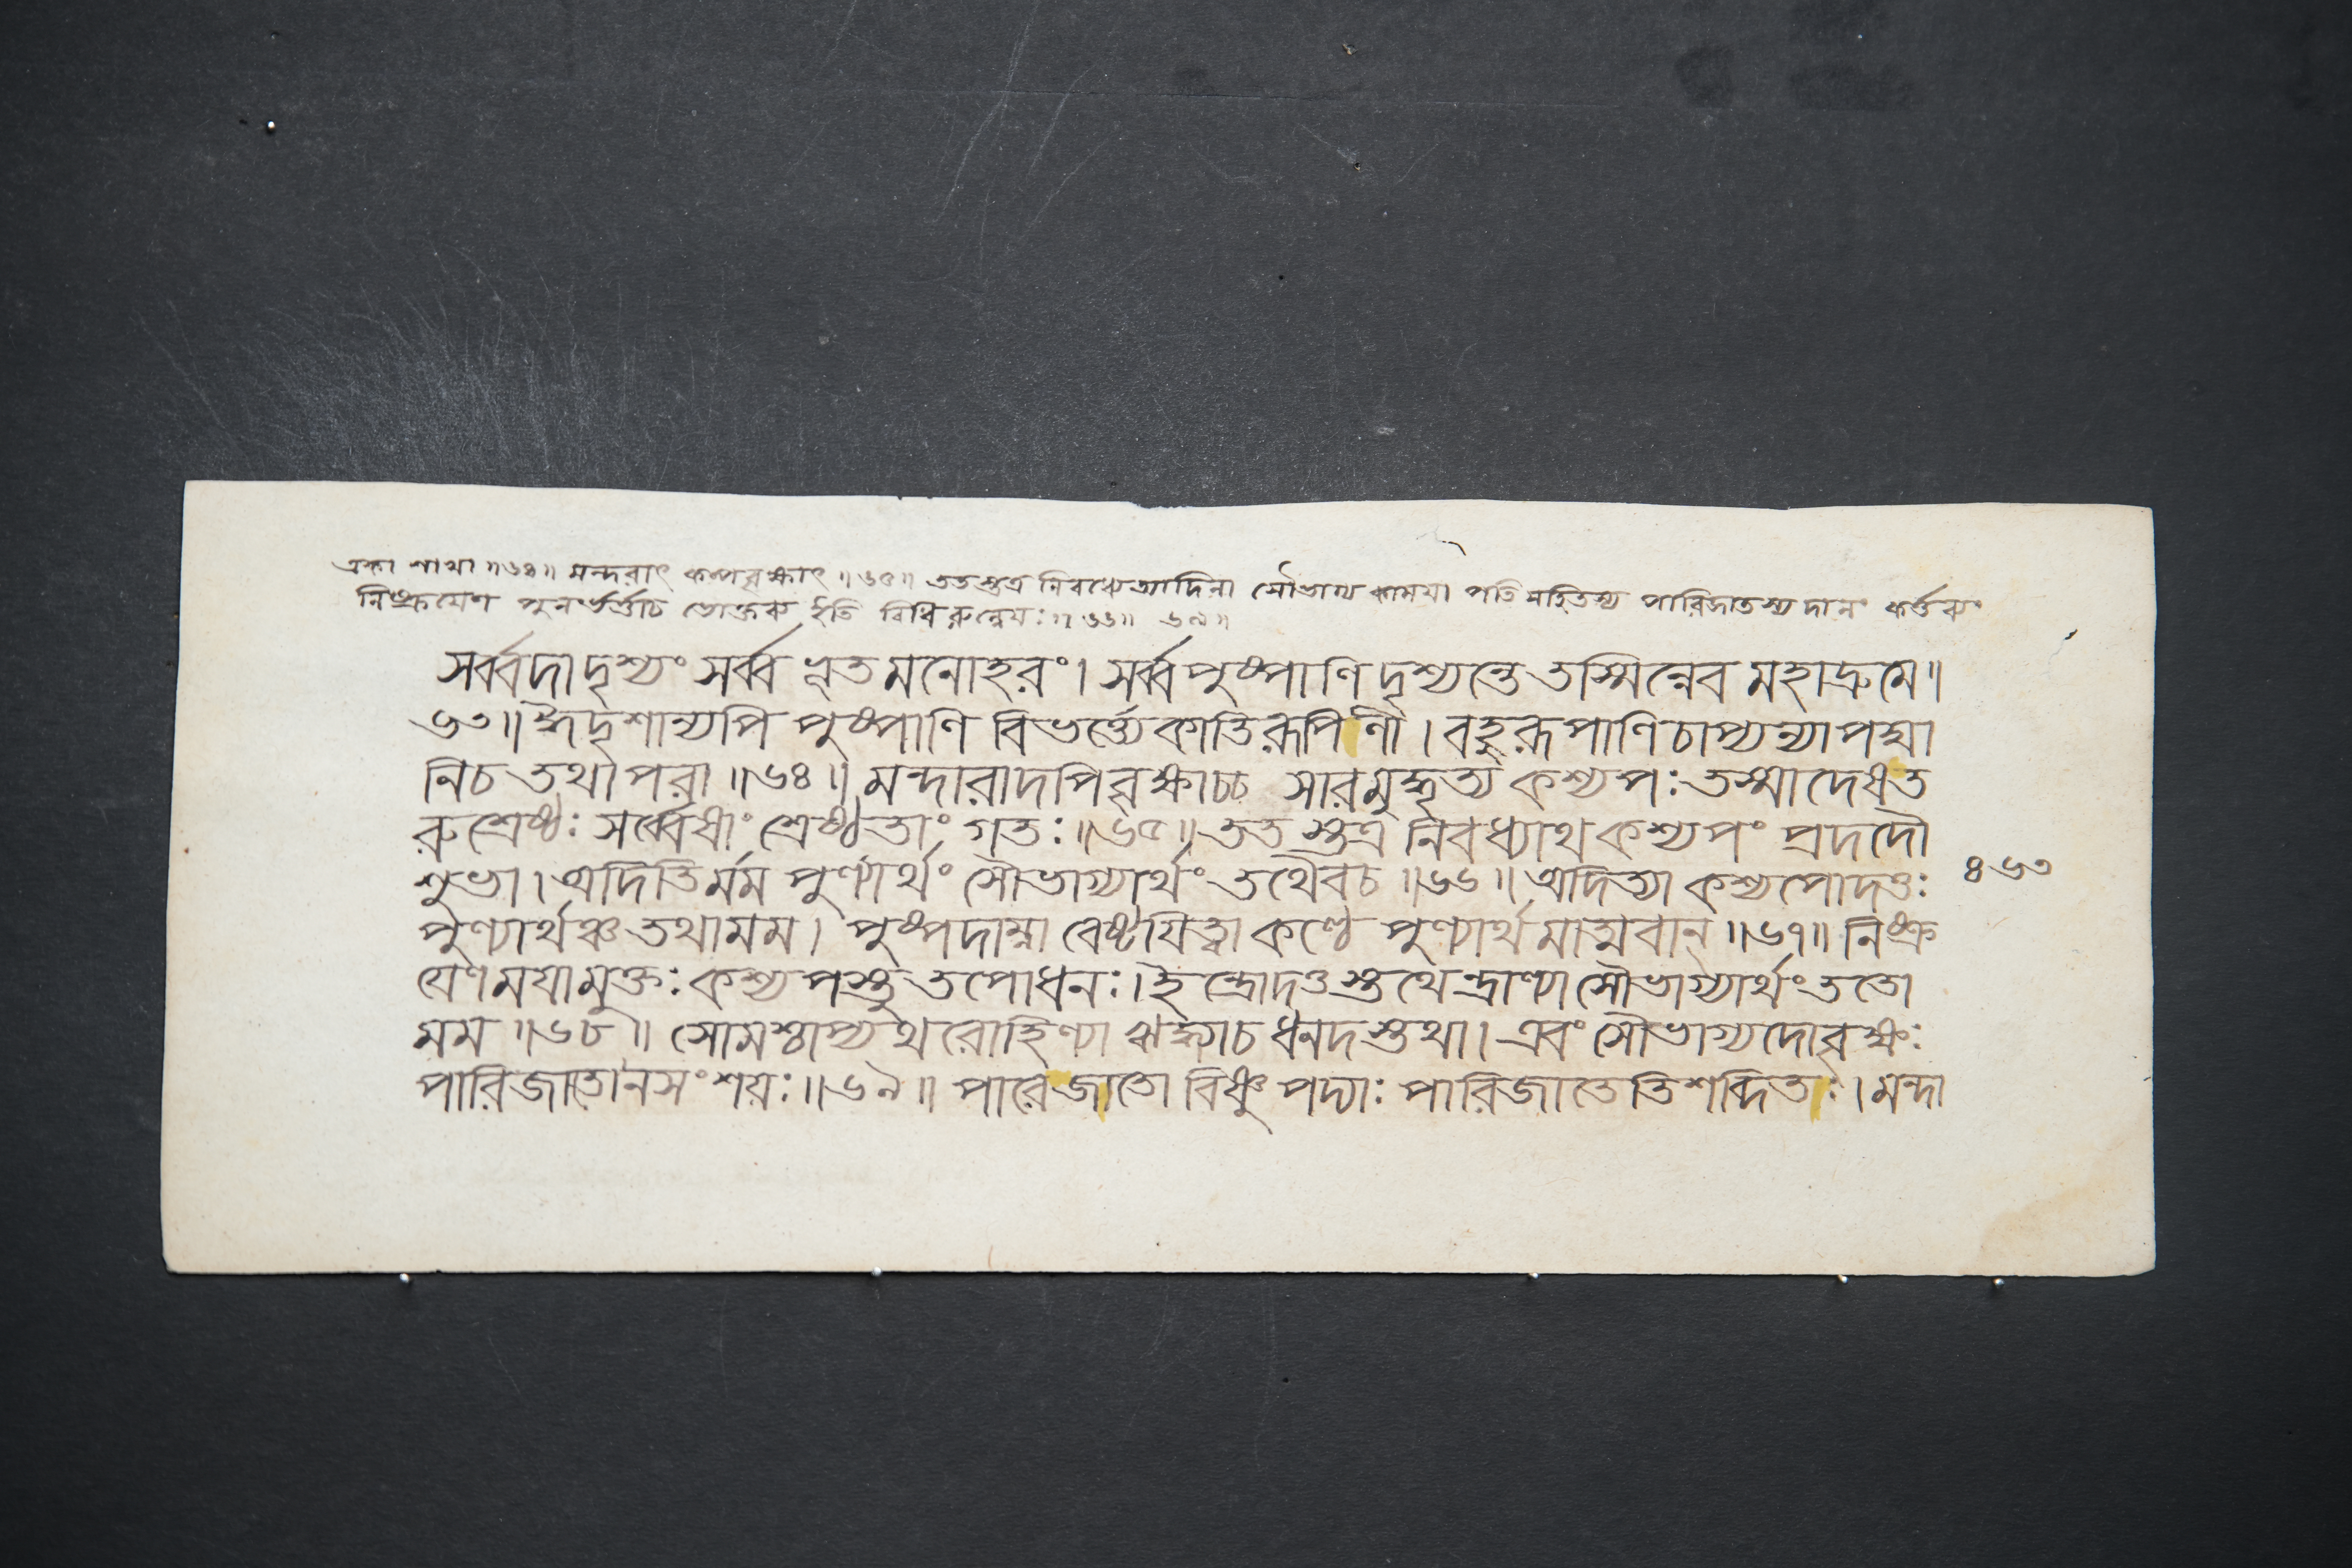 একা শাখা ॥৬৪॥ মন্দরাৎ কল্পবৃক্ষাৎ ॥৬৫॥ ততস্তত্র নিবধ্যেত্যাদিনা সৌভাগ্য কাময়া পতি সহিতস্য পারিজাতস্য দানং কর্ত্তব্যং
নিষ্ক্রয়েণ পুনর্ভর্ত্তাচ ভোক্তব্য ইতি বিধিরুন্নেয়ঃ ॥৬৬॥ ৬৯॥
সর্ব্বদা দৃশ্যং সর্ব্ব ভূত মনোহরং। সর্ব্ব পুষ্পাণি দৃশ্যন্তে তস্মিন্নেব মহাদ্রুমে॥
৬৩॥ ঈদৃশান্যপি পুষ্পাণি বিভর্ত্ত্যেকাতিরূপিণী। বহুরূপাণি চাপ্যন্যা পদ্মা
নিচ তথাপরা ॥৬৪॥ মন্দারাদপি বৃক্ষাচ্চ সারমুদ্ধৃত্য কশ্যপঃ তস্মাদেষত
রুশ্রেষ্ঠঃ সর্ব্বেষাং শ্রেষ্ঠতাং গতঃ ॥৬৫॥ ততস্তত্র নিবধ্যাথ কশ্যপং প্রদদৌ
শুভা। অদিতির্মম পুণ্যার্থং সৌভাগ্যার্থং তথৈবচ ॥৬৬॥ অদিত্যা কশ্যপোদত্তঃ
৪৬৩
পুণ্যার্থঞ্চ তথামম। পুষ্পদাম্না বেষ্টয়িত্বা কণ্ঠে পুণ্যার্থমাত্মবান্ ॥৬৭॥ নিষ্ক্র
য়েণ ময়ামুক্তঃ কশ্যপস্তু তপোধনঃ। ইন্দ্রোদত্তস্তথেন্দ্রাণ্যা সৌভাগ্যার্থং ততো
মম ॥৬৮॥ সোমশ্চাপ্যথ রোহিণ্যা ঋদ্ধ্যাচ ধনদস্তথা। এবং সৌভাগ্যদোবৃক্ষঃ
পারিজাতোনসংশয়ঃ ॥৬৯॥ পারেজাতো বিষ্ণুপদ্যাঃ পারিজাতেতিশব্দিতঃ। মন্দা